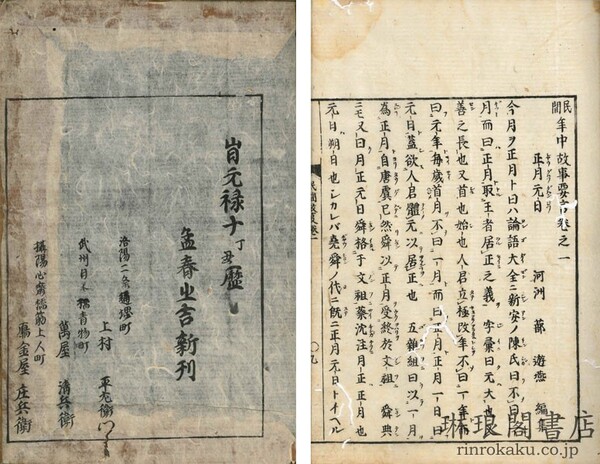 民間年中故事要言卷之一
河洲 蔀 遊燕 編集
正月元日
今月ヲ正月ト曰ハ論語大全ニ新安ノ陳氏曰不曰一
月而曰正月取王者居正之義 字彙曰元大也
善之長也又首也始也人君立極改年不曰一年而
曰元年毎歳首月不曰一月而曰正月正月一日曰
元日蓋欲人君體元以居正也 五雜組曰以一月
為正月自唐虞已然舜以正月受終於文祖 舜典
ニモ又曰月正元日舜格于文祖蔡沈注月正正月也
元日朔日也シカレバ堯舜ノ代ニ既ニ正月元日トイヘル
元禄十丁丑暦
孟春之吉新刊
洛陽二条通
上村 平左衛門
武州日本橋青物町
萬屋 清兵衛
攝陽心齋橋筋上人町
庄兵衛
琳琅閣書店
rinrokaku.co.jp